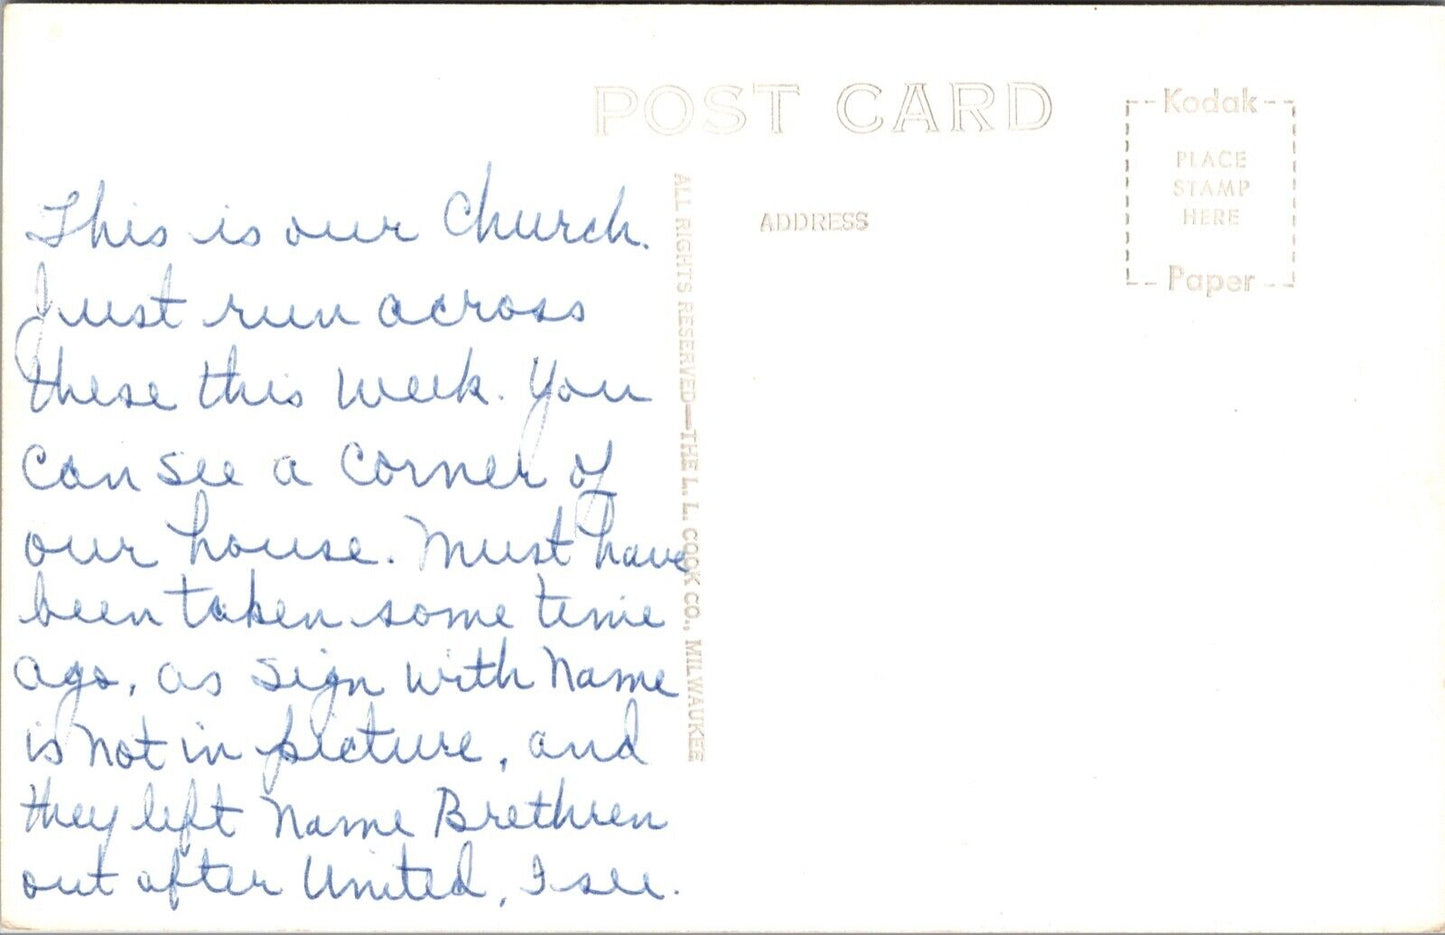 POST CARD
Kodak
PLACE
STAMP
HERE
Paper
ADDRESS
ALL RIGHTS RESERVED—THE L. L. COOK CO., MILWAUKEE
This is our Church.
Just run across
these this week. You
can see a corner of
our house. Must have
been taken some time
ago, as sign with name
is not in picture, and
they left name Brethren
out after United, I see.